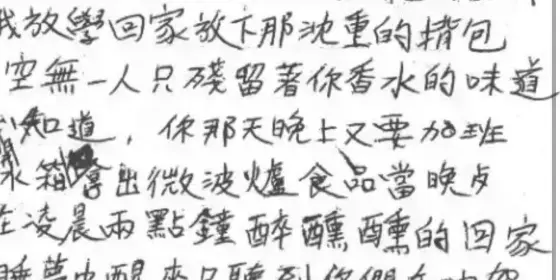 我放學回家放下那沈重的揹包
空無一人只殘留著你香水的味道
知道，你那天晚上又要加班
冰箱拿出微波爐食品當晚歺
在凌晨兩點鐘醉醺醺的回家
睡夢中醒來只聽到你們